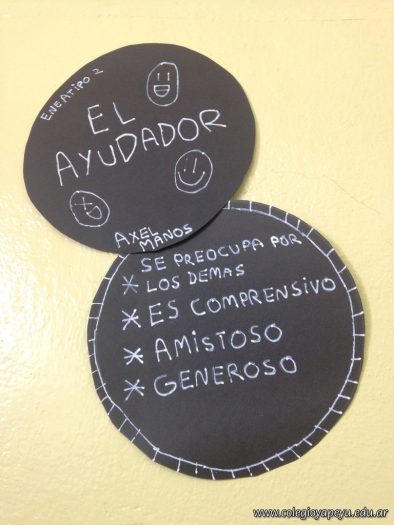 ENEATIPO 2
EL
AYUDADOR
AXEL
MANOS
SE PREOCUPA POR
* LOS DEMAS
* ES COMPRENSIVO
* AMISTOSO
* GENEROSO
www.colegioyapeyu.edu.ar